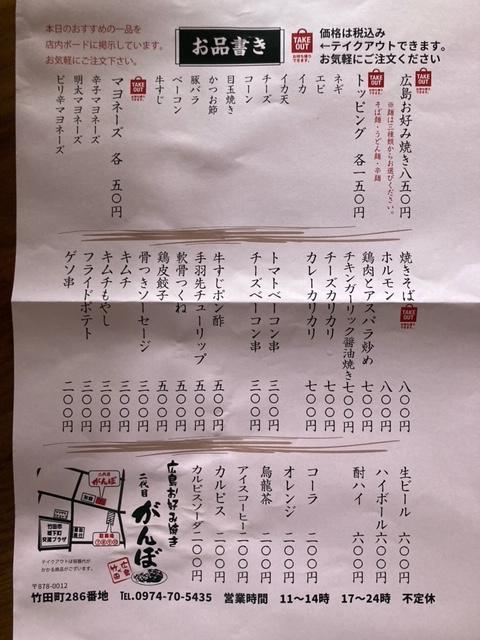 本日のおすすめの一品を
店内ボードに掲示しています。
お気軽にご注文下さい。
お品書き
TAKE OUT
価格は税込み
←テイクアウトできます。
お気軽にご注文ください
広島お好み焼き 八五〇円
※麺は三種類からお選びください。
そば麺・うどん麺・辛麺
トッピング 各一五〇円
ネギ
エビ
イカ
イカ天
チーズ
コーン
目玉焼き
かつお節
豚バラ
ベーコン
牛すじ
マヨネーズ 各 五〇円
辛子マヨネーズ
明太マヨネーズ
ピリ辛マヨネーズ
焼きそば 八〇〇円
ホルモン 八〇〇円
鶏肉とアスパラ炒め 七〇〇円
チキンガーリック醤油焼き 七〇〇円
チーズカリカリ 七〇〇円
カレーカリカリ 七〇〇円
トマトベーコン串 三〇〇円
チーズベーコン串 三〇〇円
牛すじポン酢 五〇〇円
手羽先チューリップ 五〇〇円
軟骨つくね 五〇〇円
鶏皮餃子 五〇〇円
骨つきソーセージ 三〇〇円
キムチ 三〇〇円
キムチもやし 三〇〇円
フライドポテト 三〇〇円
ゲソ串 二〇〇円
生ビール 六〇〇円
ハイボール 六〇〇円
酎ハイ 六〇〇円
コーラ 二〇〇円
オレンジ 二〇〇円
烏龍茶 二〇〇円
アイスコーヒー 二〇〇円
カルピス 二〇〇円
カルピスソーダ 二〇〇円
広島お好み焼き
二代目 がんぼ
広島
竹田
がんぼ
竹田市
城下町
交流プラザ
テイクアウトは容器代が
かかる商品がございます。
〒878-0012
竹田町286番地 TEL.0974-70-5435 営業時間 11〜14時 17〜24時 不定休